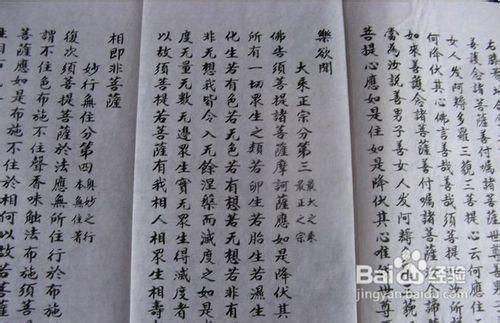 右膝
善護念諸菩薩善付囑諸
女人发阿耨多羅三藐三菩提心云何應住
何降伏其心佛言善哉善哉須菩提
如来善護念諸菩薩善付囑諸菩薩
當為汝説善男子善女人发阿耨
菩提心應如是住如是降伏其心唯然世尊
樂欲聞
大乘正宗分第三 最大之乘 最正之宗
佛告須菩提諸菩薩摩訶薩應如是降伏其
所有一切眾生之類若卵生若胎生若濕生
化生若有色若无色若有想若无想若非有
非无想我皆令入无餘涅槃而滅度之如是
度无量无數无邊眾生實无眾生得滅度者
以故須菩提若菩薩有我相人相眾生相壽
相即非菩薩
妙行無住分第四 奥妙之行 本無住著
復次須菩提菩薩於法應無所住行於布施
謂不住色布施不住聲香味触法布施須菩
菩薩應如是布施不住於相何以故若菩薩
Baidu 百度经验
jingyan.baidu.com